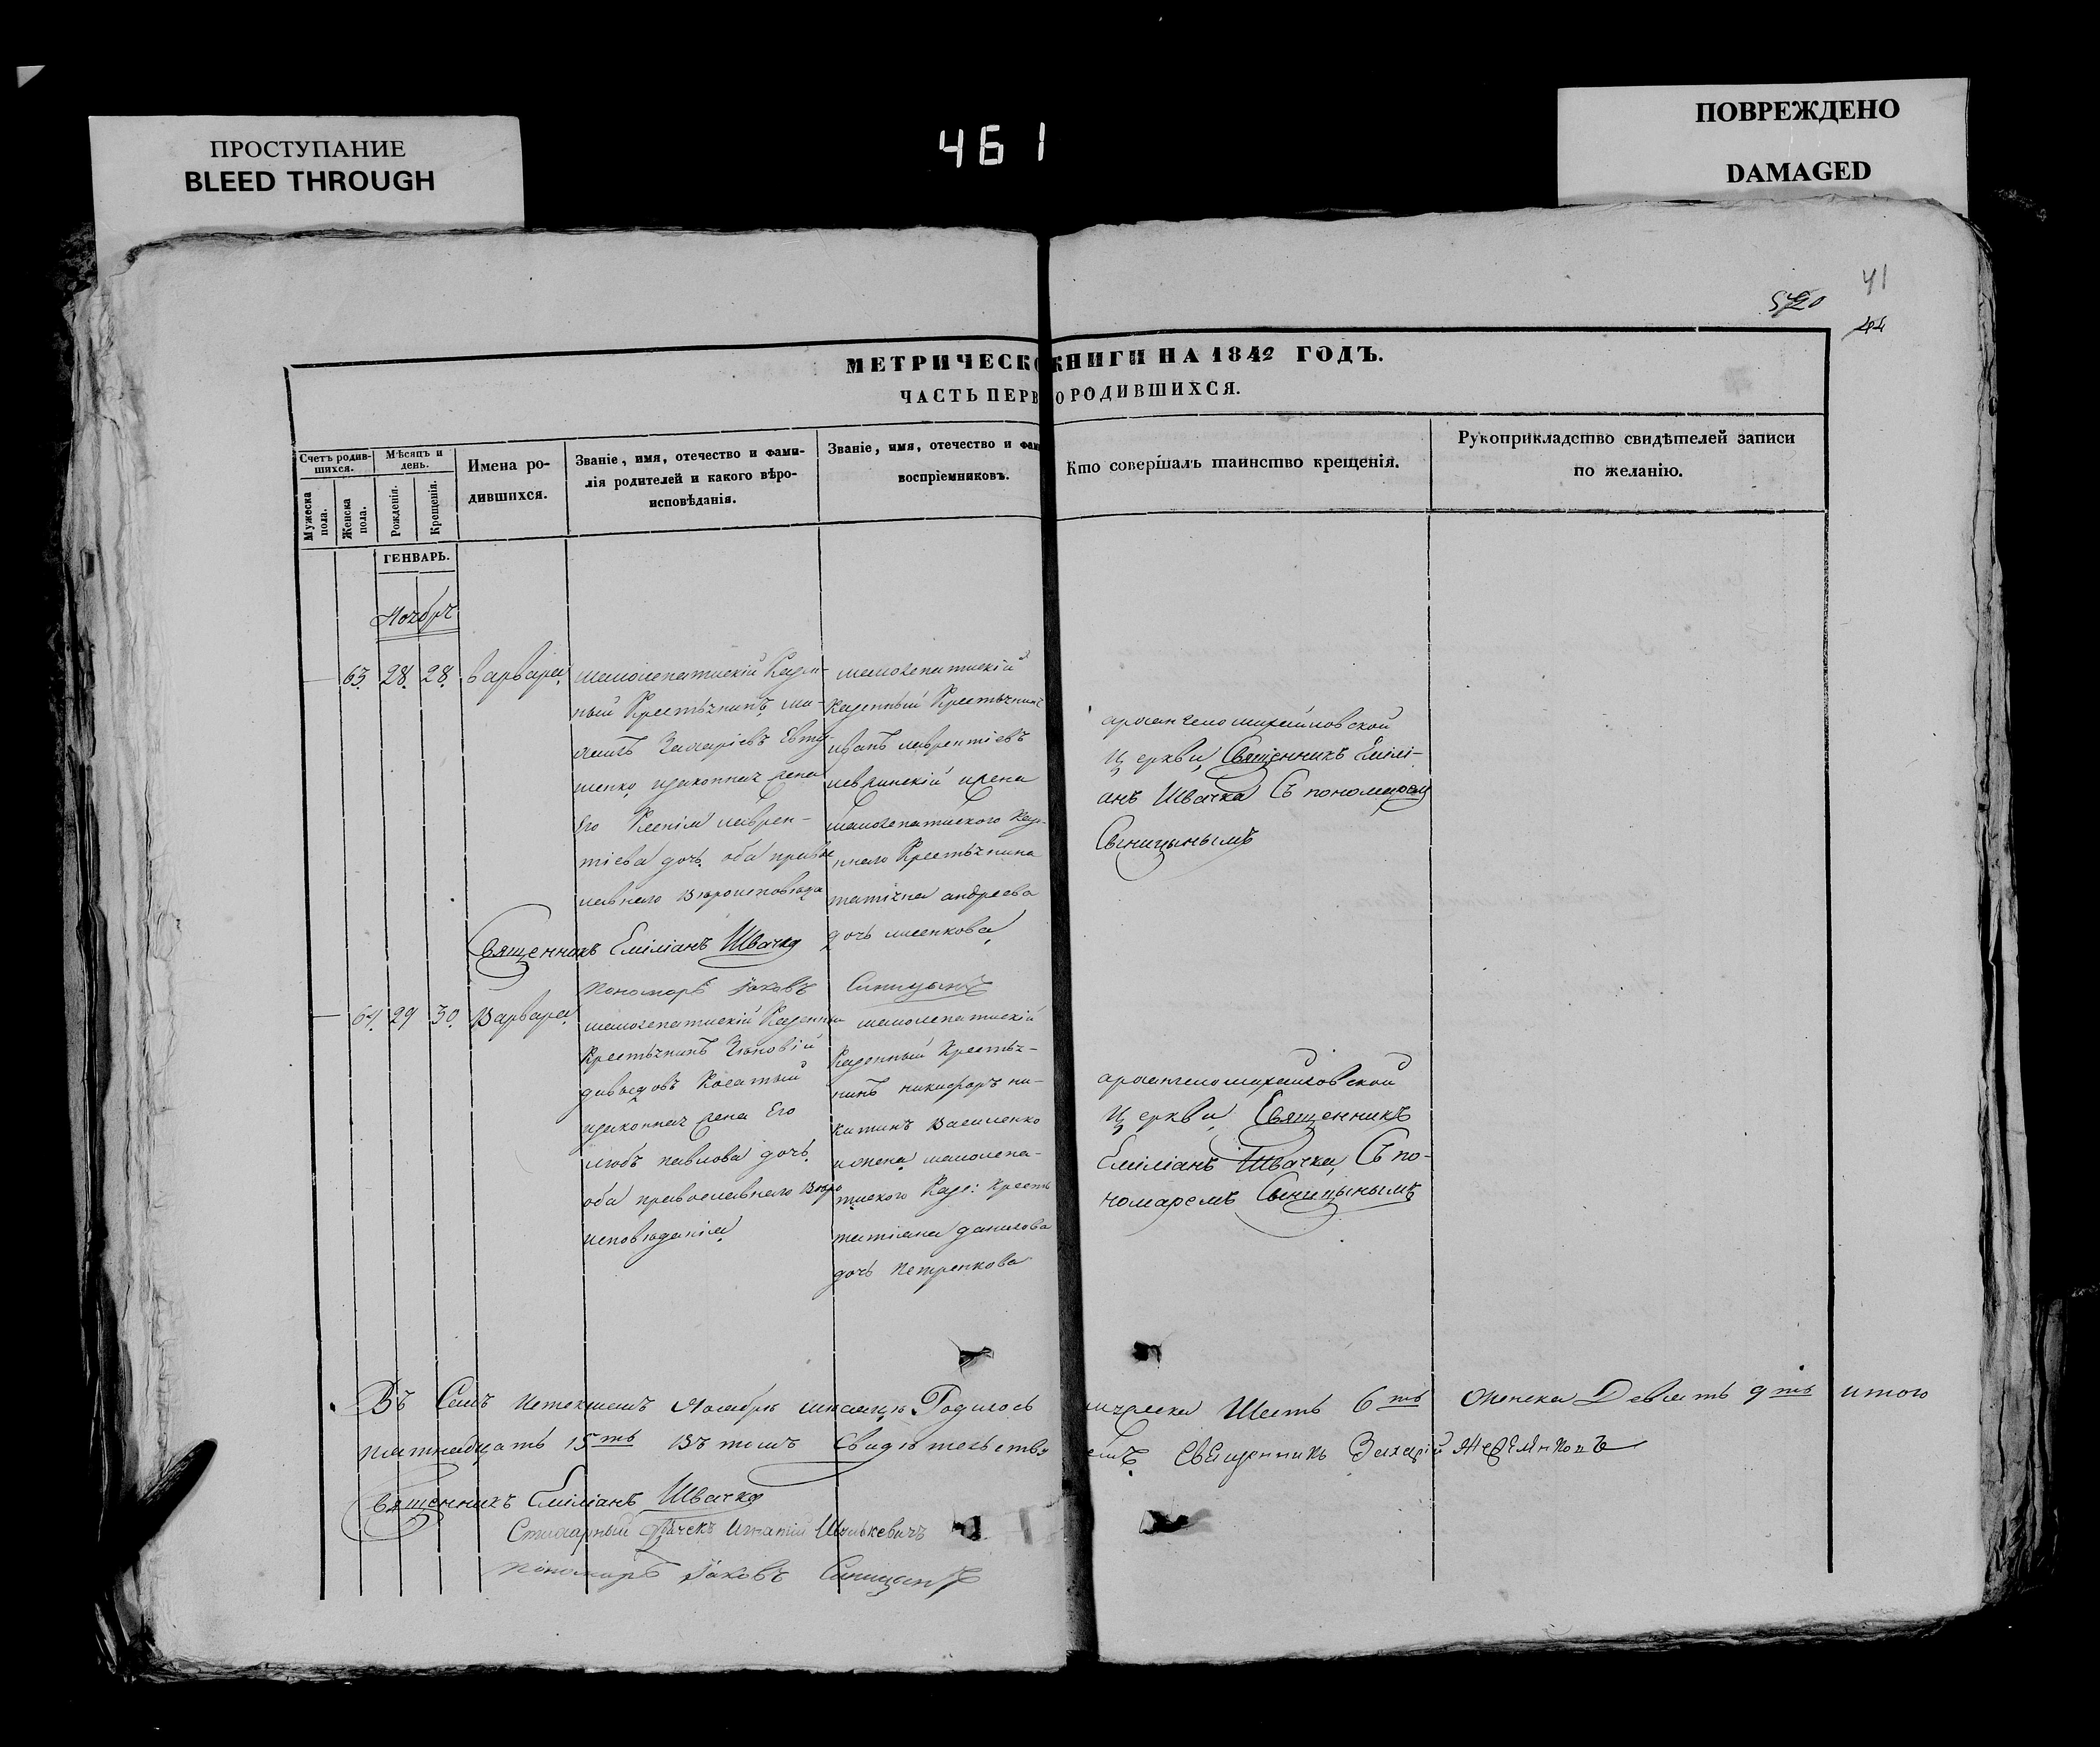 ПРОСТУПАНИЕ
BLEED THROUGH
461
ПОВРЕЖДЕНО
DAMAGED
41
44
МЕТРИЧЕСКО КНИГИ НА 1842 ГОДЪ.
ЧАСТЬ ПЕРВ О РОДИВШИХСЯ.
Счетъ родив-
шихся.
Мужеска
пола.
Женска
пола.
Мѣсяцъ и
день.
Рожденія.
Крещенія.
Имена ро-
дившихся.
Званіе, имя, отечество и фами-
лія родителей и какого вѣро-
исповѣданія.
Званіе, имя, отечество и фам
воспріемниковъ.
Кто совершалъ таинство крещенія.
Рукоприкладство свидѣтелей записи
по желанію.
ГЕНВАРЬ.
Ноябрь
63. 28. 28. Варвара
Казен-
ный Крестьянинъ
Захаріевъ Евту-
шенко, и законная жена
Его Ксенія Лаврен-
тіева дочь, оба право
славнаго Вѣроисповѣда
Казенный Крестьянинъ
Иванъ Лаврентіевъ
и жена
Каз-
ннаго Крестьянина
татіяна андреева
дочь
архангеломихайловской
Церкви, Священникъ Еміли-
анъ Швачка Съ пономарем
Синицынымъ
Священникъ Еміліанъ Швачка
Пономарь Іаковъ Синицынъ
64. 29 30. Варвара
Казенны
Крестьянинъ Зѣновій
давыдовъ Косатый
и законная жена Его
любь павлова дочь,
оба православнаго Вѣро
исповѣданія
Казенный Крестья-
нинъ никифоръ ни-
китинъ Василенко
и жена
Каз: Крест
татіана данилова
дочь Петренкова
архангеломихайловской
Церкви, Священникъ
Еміліанъ Швачка, Съ по-
номаремъ Синицынымъ
Въ Семъ истекшемъ Ноябрѣ мѣсяцѣ Родилось мужеска Шесть 6ть Женска Девять 9ть итого
пятнадцать 15ть Въ томъ Свидѣтельству емъ, Священникъ Захарій
Священникъ Еміліанъ Швачка
Стихарный Дячекъ Игнатій Шулькевичъ
Пономарь Іаковъ Синицынъ